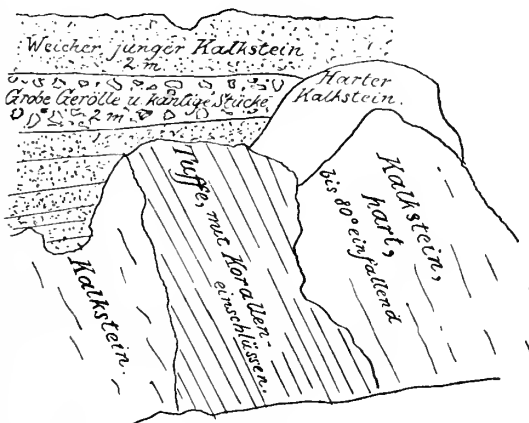 Weicher junger Kalkstein
2 m.
Grobe Gerölle u. kantige Stücke
2 m.
Harter
Kalkstein.
Kalkstein.
Tuffe, mit Korallen-
einschlüssen.
Kalkstein,
hart,
bis 80° einfallend